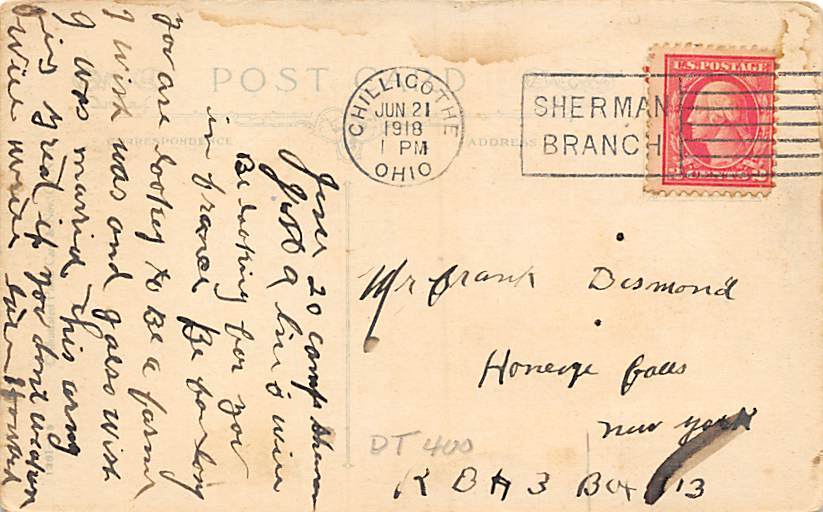 POST CARD
CORRESPONDENCE
ADDRESS
CHILLICOTHE
JUN 21
1918
1 PM
OHIO
SHERMAN
BRANCH
U.S. POSTAGE
June 20 Camp Sherman
Just a line i will
Be looking for you
in france Be for long
you are looky to Be a farmer
I wish was and I also wish
I was married this army
is tired if you dont
write Howard
Mr Frank Desmond
Honeoye Falls
New York
R D # 3 Box 113
DT 400